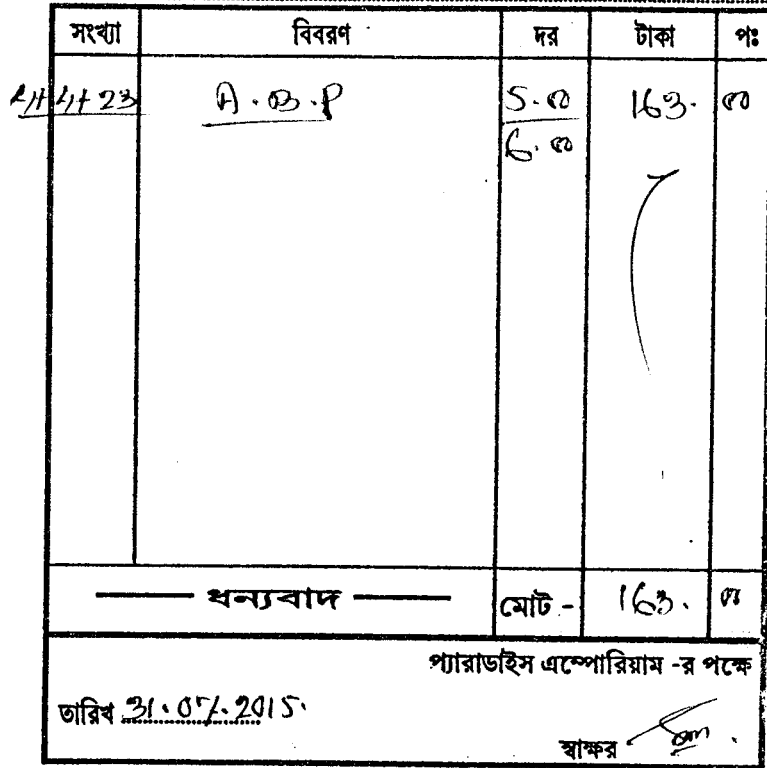 সংখ্যা বিবরণ দর টাকা পঃ
4+4+23 A.B.P 5.00 163. 00
6.00
ধন্যবাদ মোট - 163. 00
প্যারাডাইস এম্পোরিয়াম -র পক্ষে
তারিখ 31.07.2015.
স্বাক্ষর